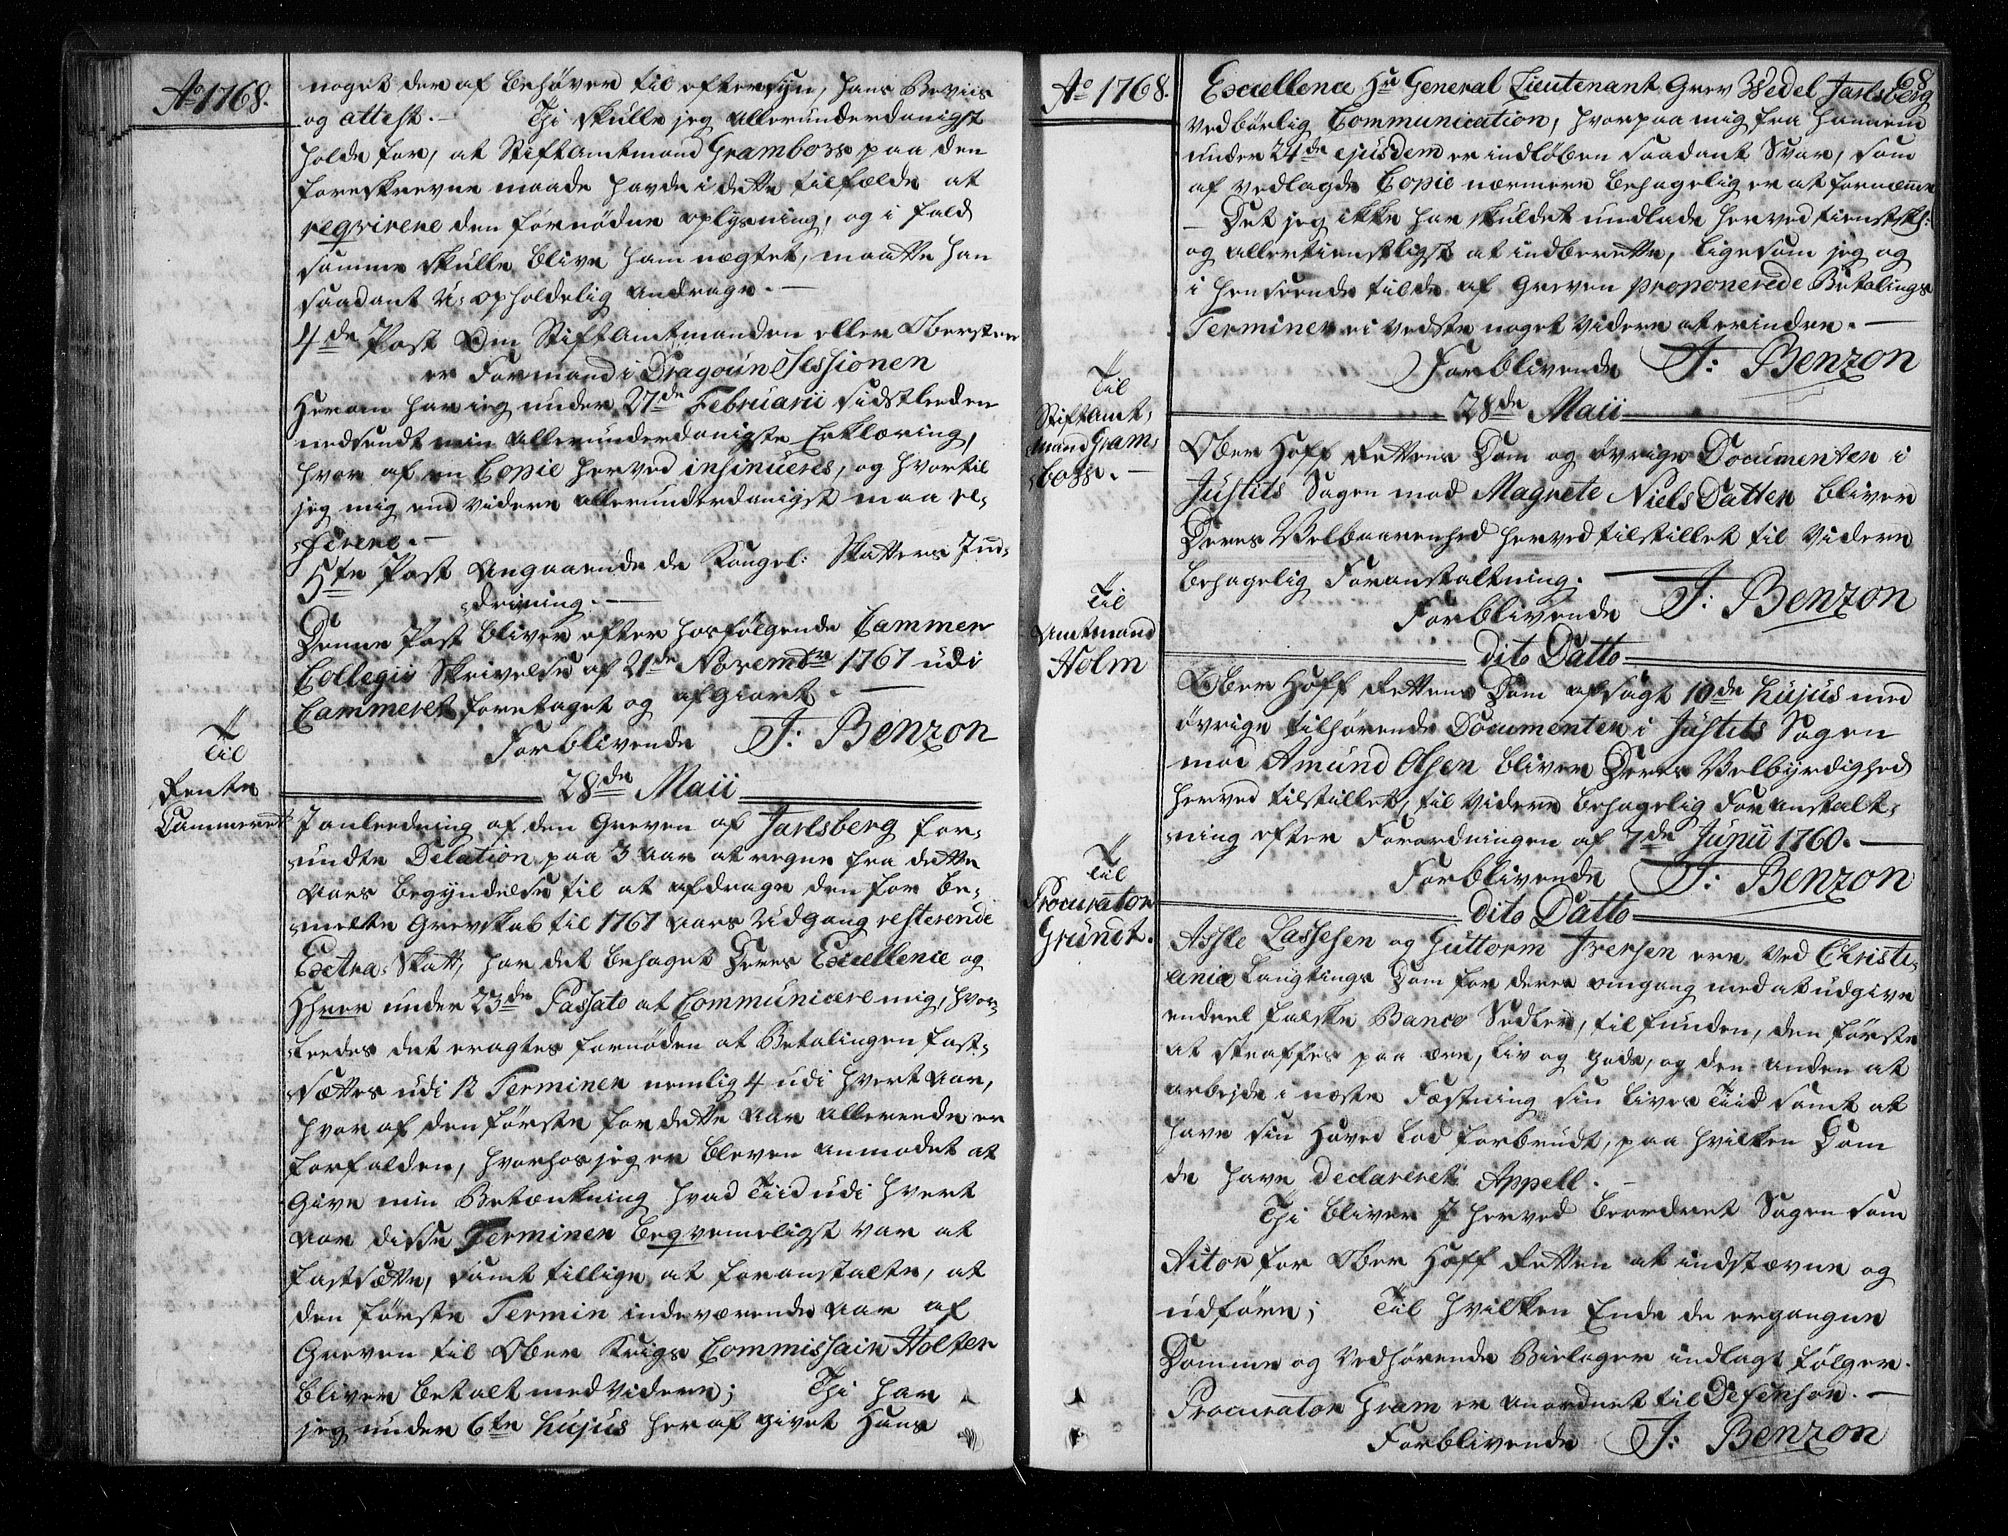 Ao 1768.
noget der af behøver til eftersyn, hans Beviis
og attest. — Thi skulle jeg allerunderdanigst
holde for, at Stiftamtmand Grambous paa den
foreskrevne maade havde i dette tilfælde at
reqvirere den fornødne oplysning, og i fald
samme skulle blive ham nægtet, maatte han
saadant u-opholdelig andrage. —
4de Post Om Stiftamtmanden eller Obersten
er Formand i Dragoun Sessionen
Herom har jeg under 27de Februarii sidstleeden
nedsendt min allerunderdanigste Erklæring,
hvor af en Copie herved insinueres, og hvortil
jeg mig end videre allerunderdanigst maa re-
ferere. —
5te Post Angaaende de Kongel: Skatters Ind-
drivning. —
Denne Post bliver efter hosfølgende Cammer
Collegii Skrivelse af 21de Novembre 1767 udi
Cammeret foretaget og afgiort. —
Forblivende J: Benzon
28de Maii
Til
Rente
Cammeret
I anleedning af den Greven af Jarlsberg for-
undte Dilation paa 3 Aar at regne fra dette
Aars begyndelse til at afdrage den for be-
melte Grevskab til 1767 Aars Udgang resterende
Extra-Skatt, har det behaget Deres Excellence og
Hherrer under 23de Passato at Communicere mig, hvor-
leedes det eragtes fornøden at Betalingen fast-
sættes udi 12 Terminer nemlig 4 udi hvert Aar,
hvor af den første for dette Aar allerede er
forfalden, hvorhos jeg er bleven anmodet at
give min Betænkning hvad Tiid udi hvert
Aar disse Terminer beqvemeligst var at
fastsætte, samt tillige at foranstalte, at
den første Termin indeværende Aar af
Greven til Ober Krigs Commissair Holster
bliver betalt med videre; Thi har
jeg under 6te hujus her af givet Hans
Ao 1768.
68
Excellence Hr General Lieutenant Grev Wedel Jarlsberg
vedbørlig Communication, hvorpaa mig fra hannem
under 24de ejusdem er indløben saadant Svar, som
af vedlagde Copie nærmere behagelig er at fornemme
— Det jeg ikke har skuldet undlade herved tienstskl:
og allertienstligst at indberette, ligesom jeg og
i henseende til de af Greven proponerede Betalings
Terminer ei vedste noget videre at erindre. —
Forblivende J: Benzon
28de Maii
Til
Stiftamt-
mand Gram-
bous. —
Ober Hoff Rettens Dom og øvrige Documenter i
Justits Sagen mod Magrete Niels Datter bliver
Deres Velbaarenhed herved tilstillet til videre
behagelig Foranstaltning.
Forblivende J: Benzon
dito Datto
Til
Amtmand
Holm
Ober Hoff Rettens Dom afsagt 10de hujus med
øvrige tilhørende Documenter i Justits Sagen
mod Amund Olsen bliver Deres Velbyrdighed
herved tilstillet, til videre behagelig Foranstalt-
ning efter Forordningen af 7de Junii 1760. —
Forblivende J: Benzon
dito Datto
Til
Procurator
Grundt.
Assle Lassesen og Guttorm Iversen ere ved Christi-
ania Laugtings Dom for deres omgang med at udgive
endeel falske Banco Sedler, tilfunden, den første
at straffes paa ære, liv og gods, og den anden at
arbejde i næste Fæstning sin Lives Tiid samt at
have sin Hoved Lod forbrudt, paa hvilken Dom
de have declareret Appell. —
Thi bliver I herved beordret Sagen som
Actor for Ober Hoff Retten at indstævne og
udføre; Til hvilken Ende de ergangne
Domme og vedhørende Bielager indlagt følger.
Procurator Gram er anordnet til Defensor. —
Forblivende J: Benzon